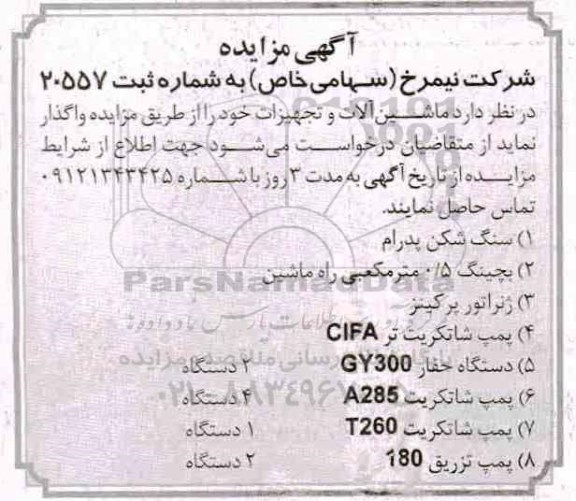 آگهی مزایده
شرکت نیمرخ (سهامی خاص) به شماره ثبت ۲۰۵۵۷
در نظر دارد ماشین‌آلات و تجهیزات خود را از طریق مزایده واگذار
نماید از متقاضیان درخواست می‌شود جهت اطلاع از شرایط
مزایده از تاریخ آگهی به مدت ۳ روز با شماره ۰۹۱۲۱۳۴۳۴۲۵
تماس حاصل نمایند.
۱) سنگ شکن پدرام
۲) بچینگ ۰/۵ مترمکعبی راه ماشین
ParsNamadData
۳) ژنراتور پرکینز
۴) پمپ شاتکریت تر CIFA
۵) دستگاه حفار GY300 ۲ دستگاه
۶) پمپ شاتکریت A285 ۴ دستگاه
۷) پمپ شاتکریت T260 ۱ دستگاه
۸) پمپ تزریق 180 ۲ دستگاه